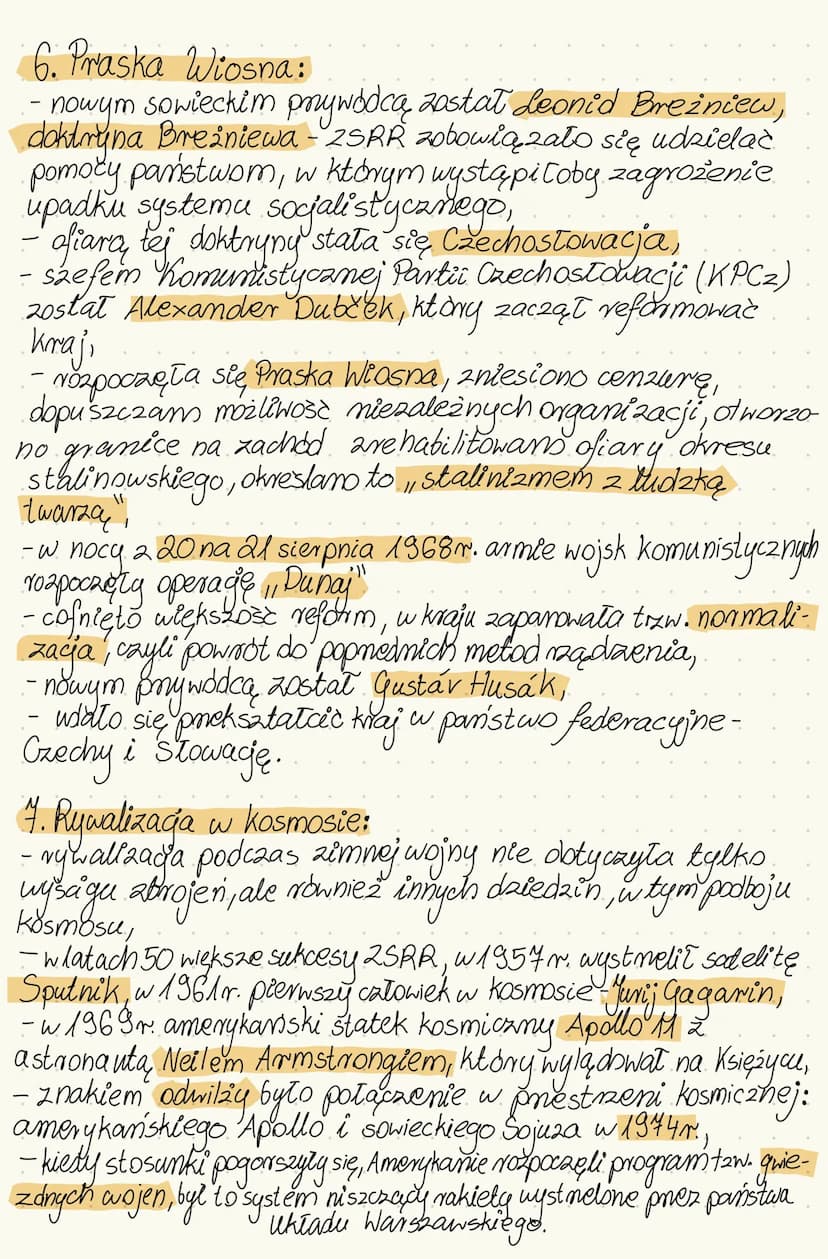 6. Praska Wiosna:
- nowym sowieckim przywódcą został Leonid Breżniew,
doktryna Breżniewa - ZSRR zobowiązało się udzielać
pomocy państwom, w którym wystąpiłoby zagrożenie
upadku systemu socjalistycznego,
- ofiarą tej doktryny stała się Czechosłowacja,
- szefem Komunistycznej Partii Czechosłowacji (KPCz)
został Alexander Dubček, który zaczął reformować
kraj,
- rozpoczęła się Praska Wiosna, zniesiono cenzurę,
dopuszczano możliwość niezależnych organizacji, otworzo-
no granice na zachód zrehabilitowano ofiary okresu
stalinowskiego, określano to „stalinizmem z ludzką
twarzą",
- w nocy z 20 na 21 sierpnia 1968r. armie wojsk komunistycznych
rozpoczęły operację „Dunaj"
- cofnięto większość reform, w kraju zapanowała tzw. normali-
zacja, czyli powrót do poprzednich metod rządzenia,
- nowym przywódcą został Gustáv Husák,
- udało się przekształcić kraj w państwo federacyjne -
Czechy i Słowację.
7. Rywalizacja w kosmosie:
- rywalizacja podczas zimnej wojny nie dotyczyła tylko
wyścigu zbrojeń, ale również innych dziedzin, w tym podboju
kosmosu,
- w latach 50 większe sukcesy ZSRR, w 1957r. wystrzelił satelitę
Sputnik, w 1961r. pierwszy człowiek w kosmosie Jurij Gagarin,
- w 1969r. amerykański statek kosmiczny Apollo 11 z
astronautą Neilem Armstrongiem, który wylądował na Księżycu,
- znakiem odwilży było połączenie w przestrzeni kosmicznej:
amerykańskiego Apollo i sowieckiego Sojuza w 1974r.,
- kiedy stosunki pogorszyły się, Amerykanie rozpoczęli program tzw. gwie-
zdnych wojen, był to system niszczący rakiety wystrzelone przez państwa
Układu Warszawskiego.